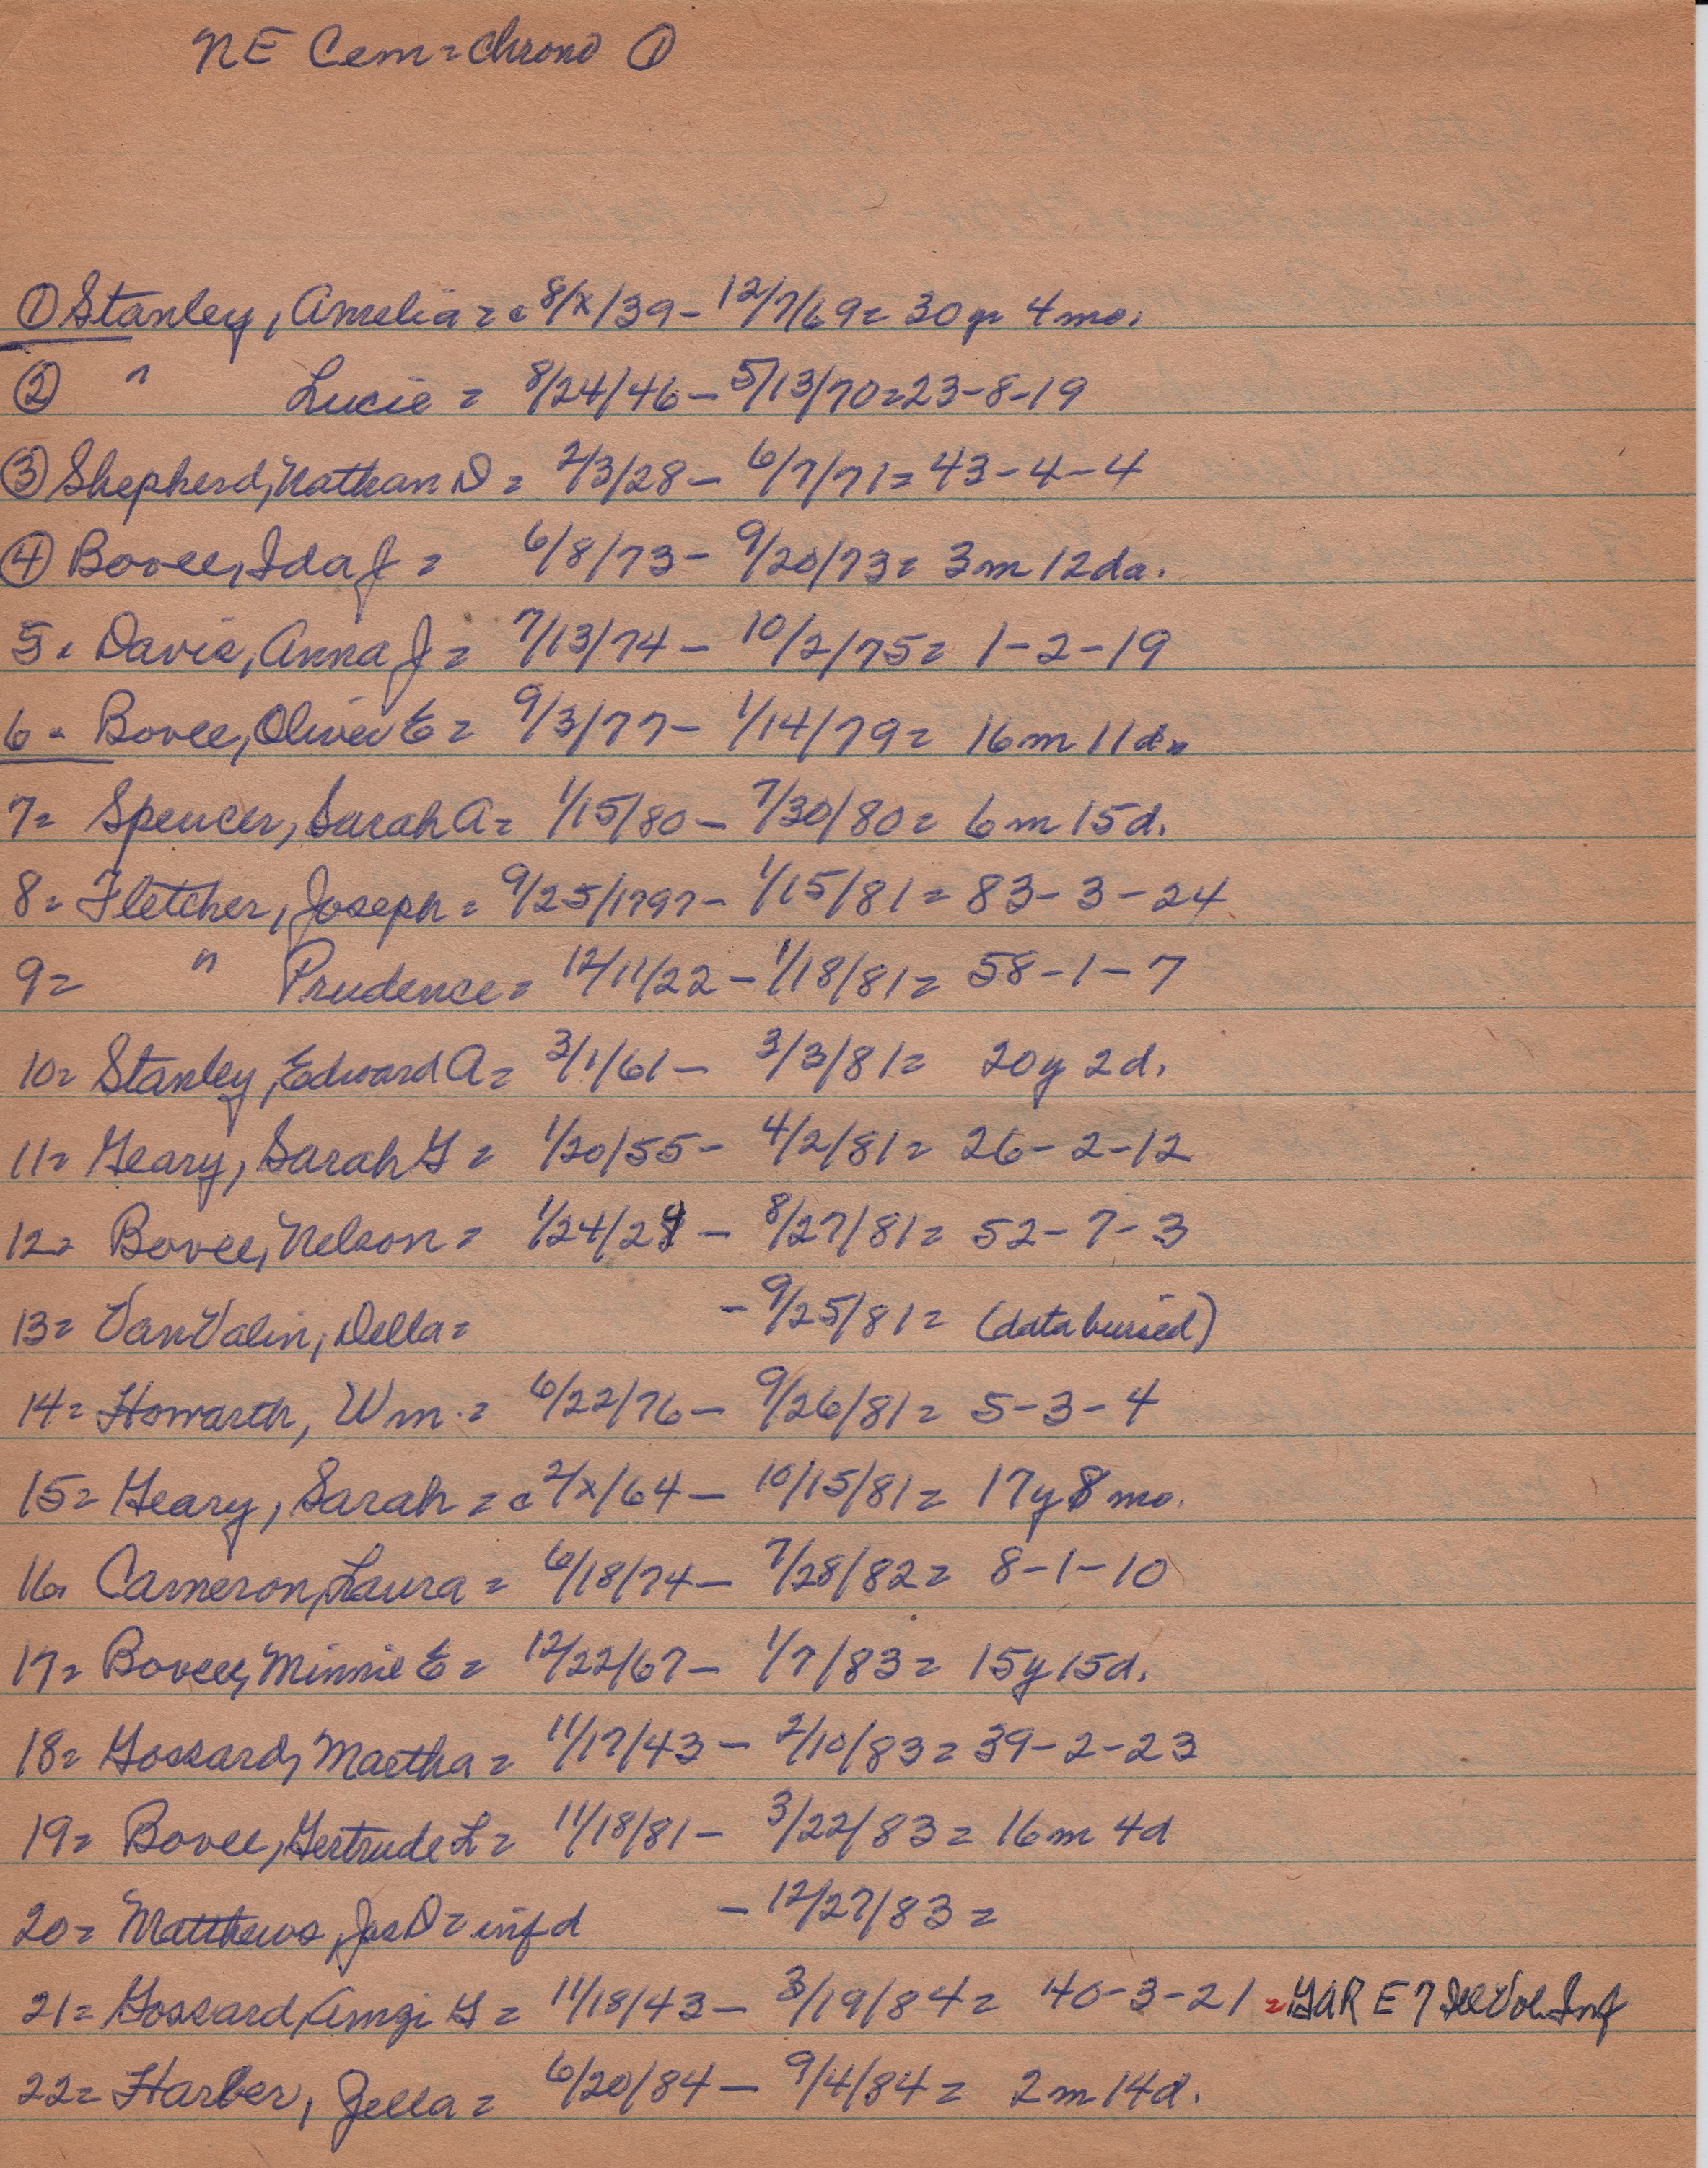 NE Cem = Chrono ①
① Stanley, Amelia = c 8/x/39 - 12/7/69 = 30 yr 4 mo.
② " Lucie = 8/24/46 - 5/13/70 = 23-8-19
③ Shepherd, Nathan D = 2/3/28 - 6/7/71 = 43-4-4
④ Bovee, Ida J = 6/8/73 - 9/20/73 = 3m 12da.
5 = Davis, Anna J = 7/13/74 - 10/2/75 = 1-2-19
6 = Bovee, Oliver E = 9/3/77 - 1/14/79 = 16m 11da
7 = Spencer, Sarah A = 1/15/80 - 7/30/80 = 6m 15d.
8 = Fletcher, Joseph = 9/25/1797 - 1/15/81 = 83-3-24
9 = " Prudence = 12/11/22 - 1/18/81 = 58-1-7
10 = Stanley, Edward A = 3/1/61 - 3/3/81 = 20y 2d.
11 = Geary, Sarah G = 1/20/55 - 4/2/81 = 26-2-12
12 = Bovee, Nelson = 1/24/29 - 8/27/81 = 52-7-3
13 = VanValin, Della = - 9/25/81 = (data buried)
14 = Howarth, Wm. = 6/22/76 - 9/26/81 = 5-3-4
15 = Geary, Sarah = c 2/x/64 - 10/15/81 = 17y 8 mo.
16 = Cameron, Laura = 6/18/74 - 7/28/82 = 8-1-10
17 = Bovee, Minnie E = 12/22/67 - 1/7/83 = 15y 15d.
18 = Gossard, Martha = 11/17/43 - 2/10/83 = 39-2-23
19 = Bovee, Gertrude L = 11/18/81 - 3/22/83 = 16m 4d
20 = Matthews, Jas D = inf d - 12/27/83 =
21 = Gossard, Amzi G = 11/18/43 - 3/19/84 = 40-3-21 = GAR E 7 Ill Vol. Inf
22 = Harber, Zella = 6/20/84 - 9/4/84 = 2m 14d.